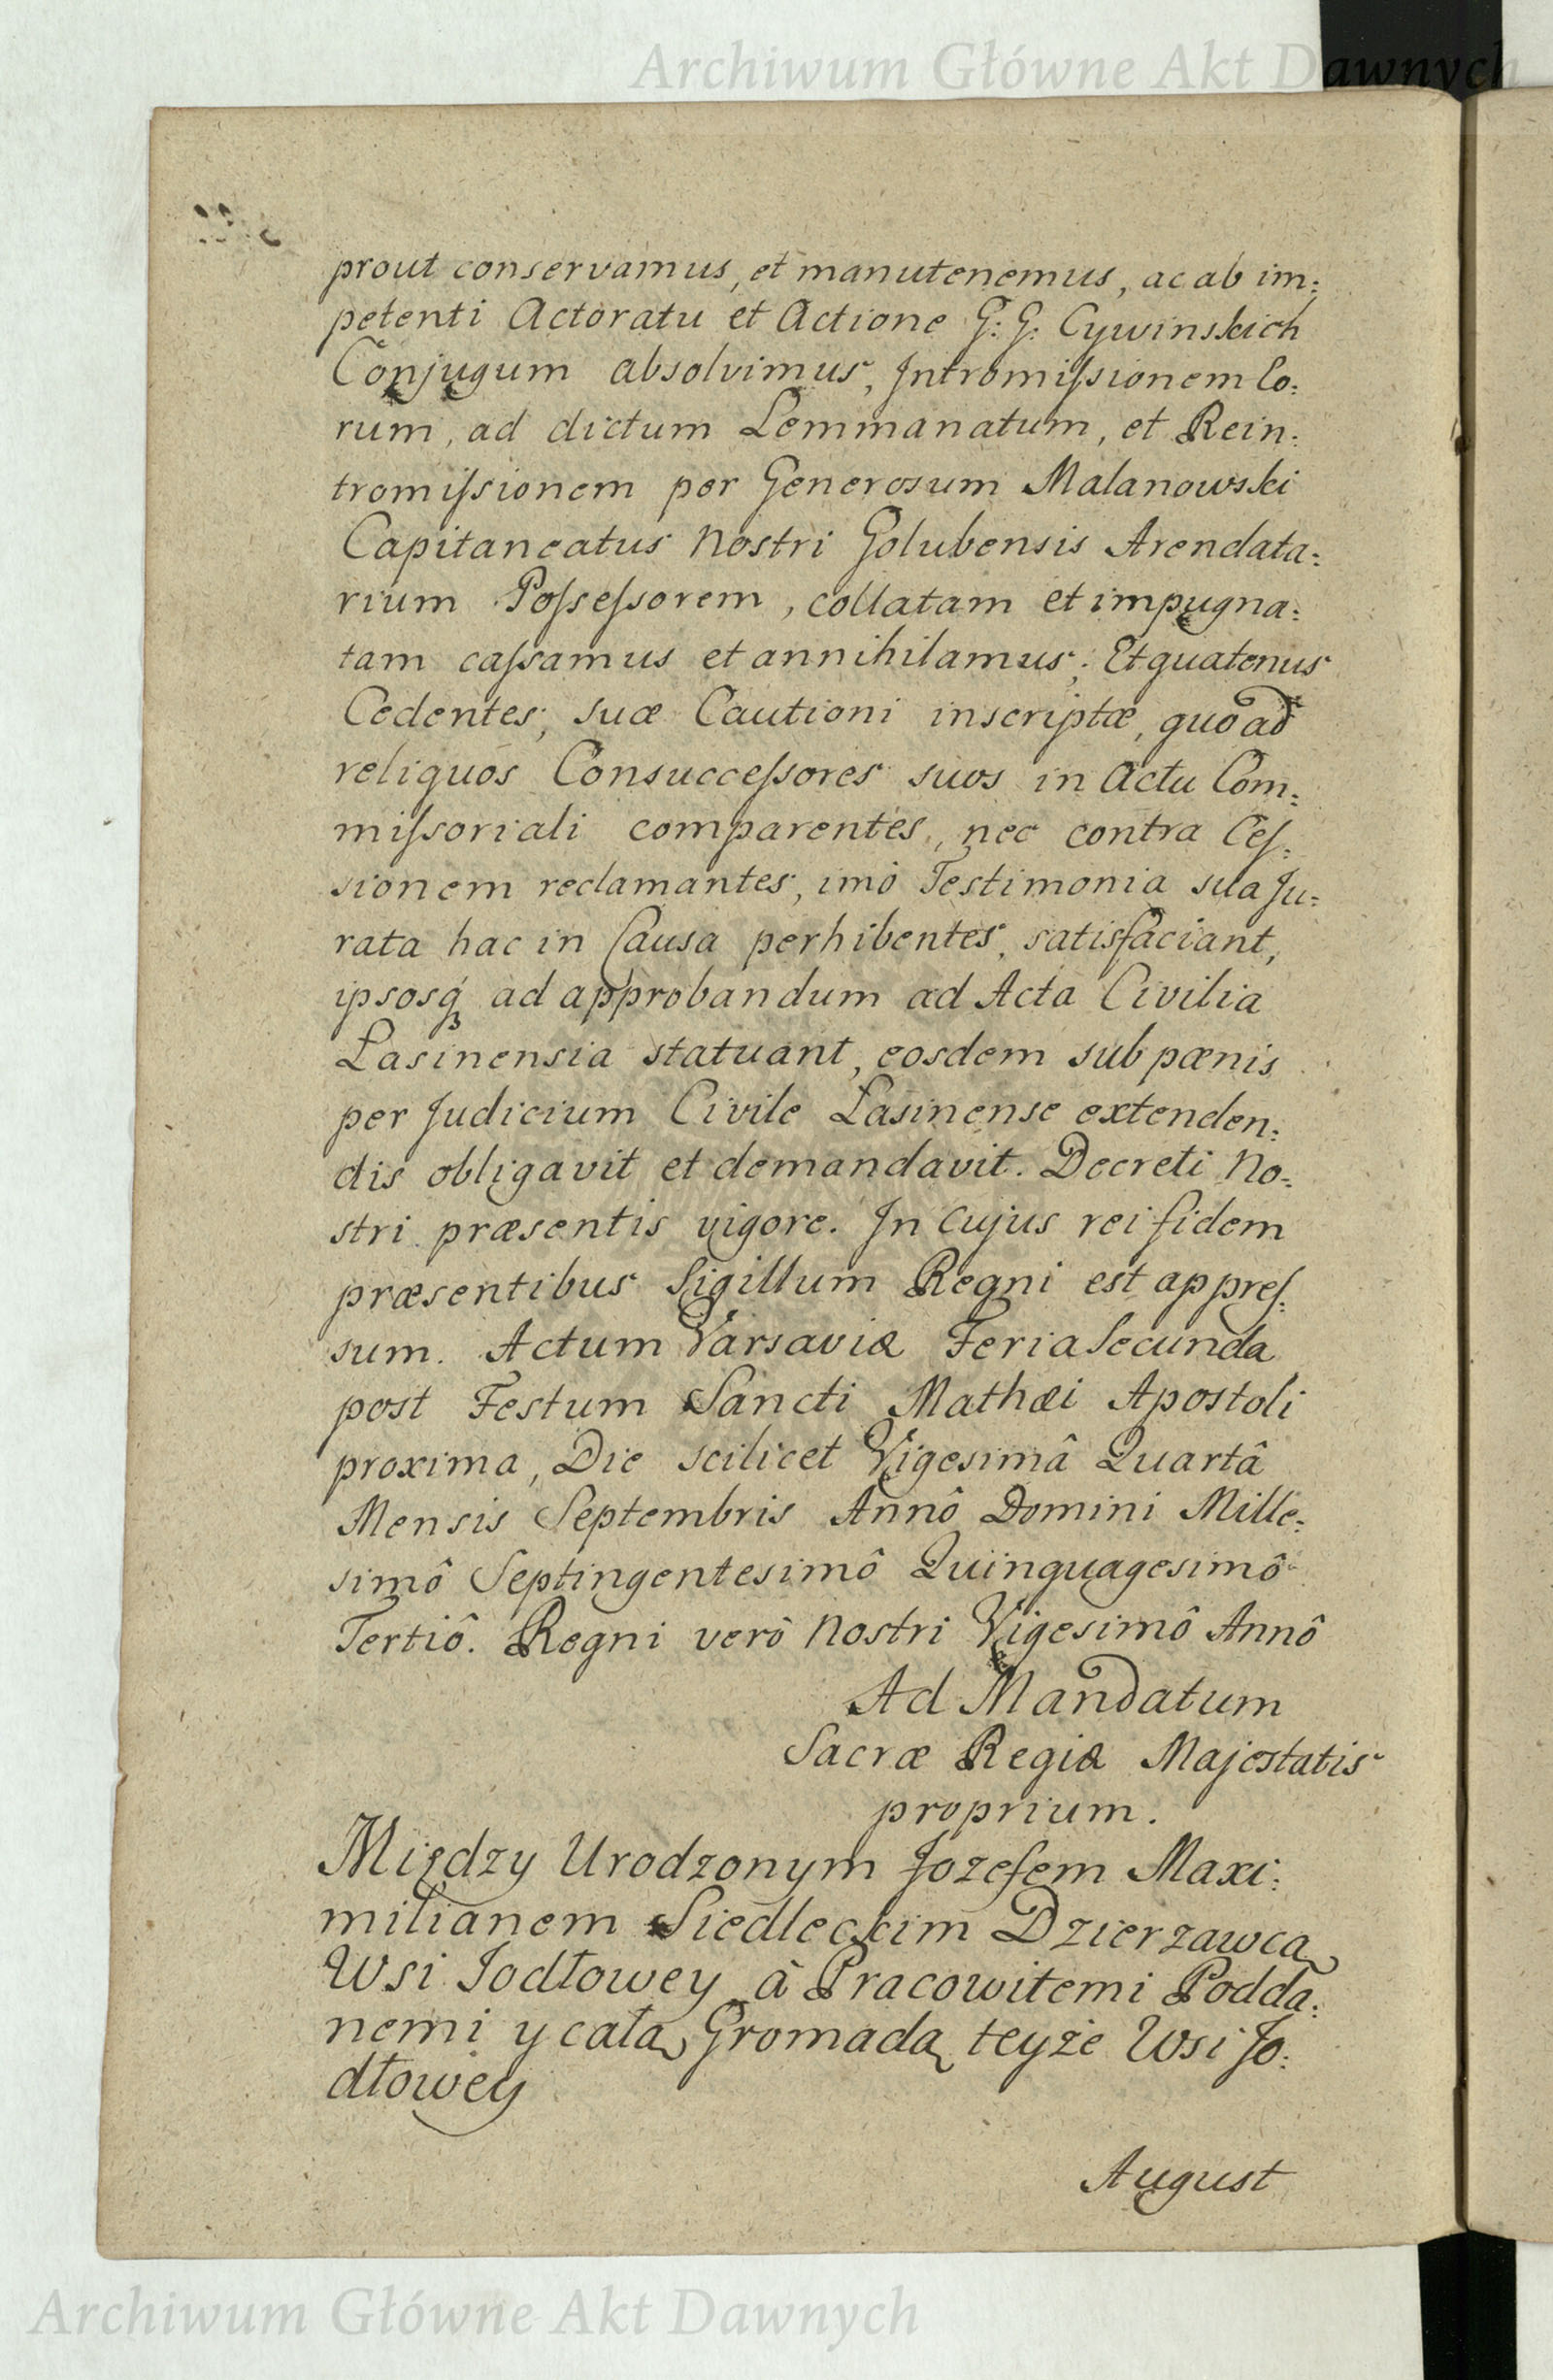 Archiwum Główne Akt Dawnych
prout conservamus, et manutenemus, ac ab im:
petenti Actoratu et Actione G: G: Cywinskich
Conjugum absolvimus, Intromiſsionem Eo:
rum, ad dictum Lemmanatum, et Rein:
tromiſsionem per Generosum Malanowski
Capitaneatus Nostri Golubensis Arendata:
rium Poſseſsorem, collatam et impugna:
tam caſsamus et annihilamus; Et quatenus
Cedentes, suæ Cautioni inscriptæ, quo ad
reliquos Consucceſsores suos in Actu Com:
miſsoriali comparentes, nec contra Ceſ:
sionem reclamantes, imò Testimonia sua Ju:
rata hac in Causa perhibentes, satisfaciant,
ipsosq́ ad approbandum ad Acta Civilia
Lasinensia statuant, eosdem sub pœnis
per Judicium Civile Lasinense extenden:
dis obligavit et demandavit. Decreti No:
stri præsentis vigore. In cujus rei fidem
præsentibus Sigillum Regni est appreſ:
sum. Actum Varsaviæ Feria Secunda
post Festum Sancti Mathæi Apostoli
proxima, Die scilicet Vigesimâ Quartâ
Mensis Septembris Annô Domini Mille:
simô Septingentesimô Quinquagesimô
Tertiô. Regni verò Nostri Vigesimô Annô
Ad Mandatum
Sacræ Regiæ Majestatis
proprium.
Między Urodzonym Jozefem Maxi:
milianem Siedleckim Dzierzawcą
Wsi Jodłowey, à Pracowitemi Podda:
nemi y całą Gromadą teyże Wsi Jo:
dłowey
August
Archiwum Główne Akt Dawnych